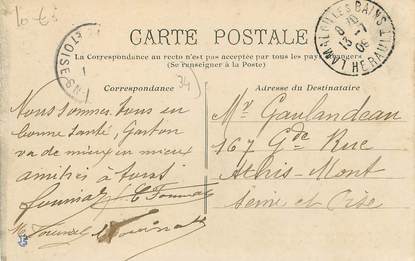 10 €
CARTE POSTALE
La Correspondance au recto n'est pas acceptée par tous les pays étrangers
(Se renseigner à la Poste)
LAMALOU LES BAINS
13 -7
09
HERAULT
Correspondance
Adresse du Destinataire
Nous sommes tous en
bonne santé, Gaston
va de mieux en mieux
amitiés à tous
Mr Gaulandeau
167 Gde Rue
Athis-Mont
Seine et Oise